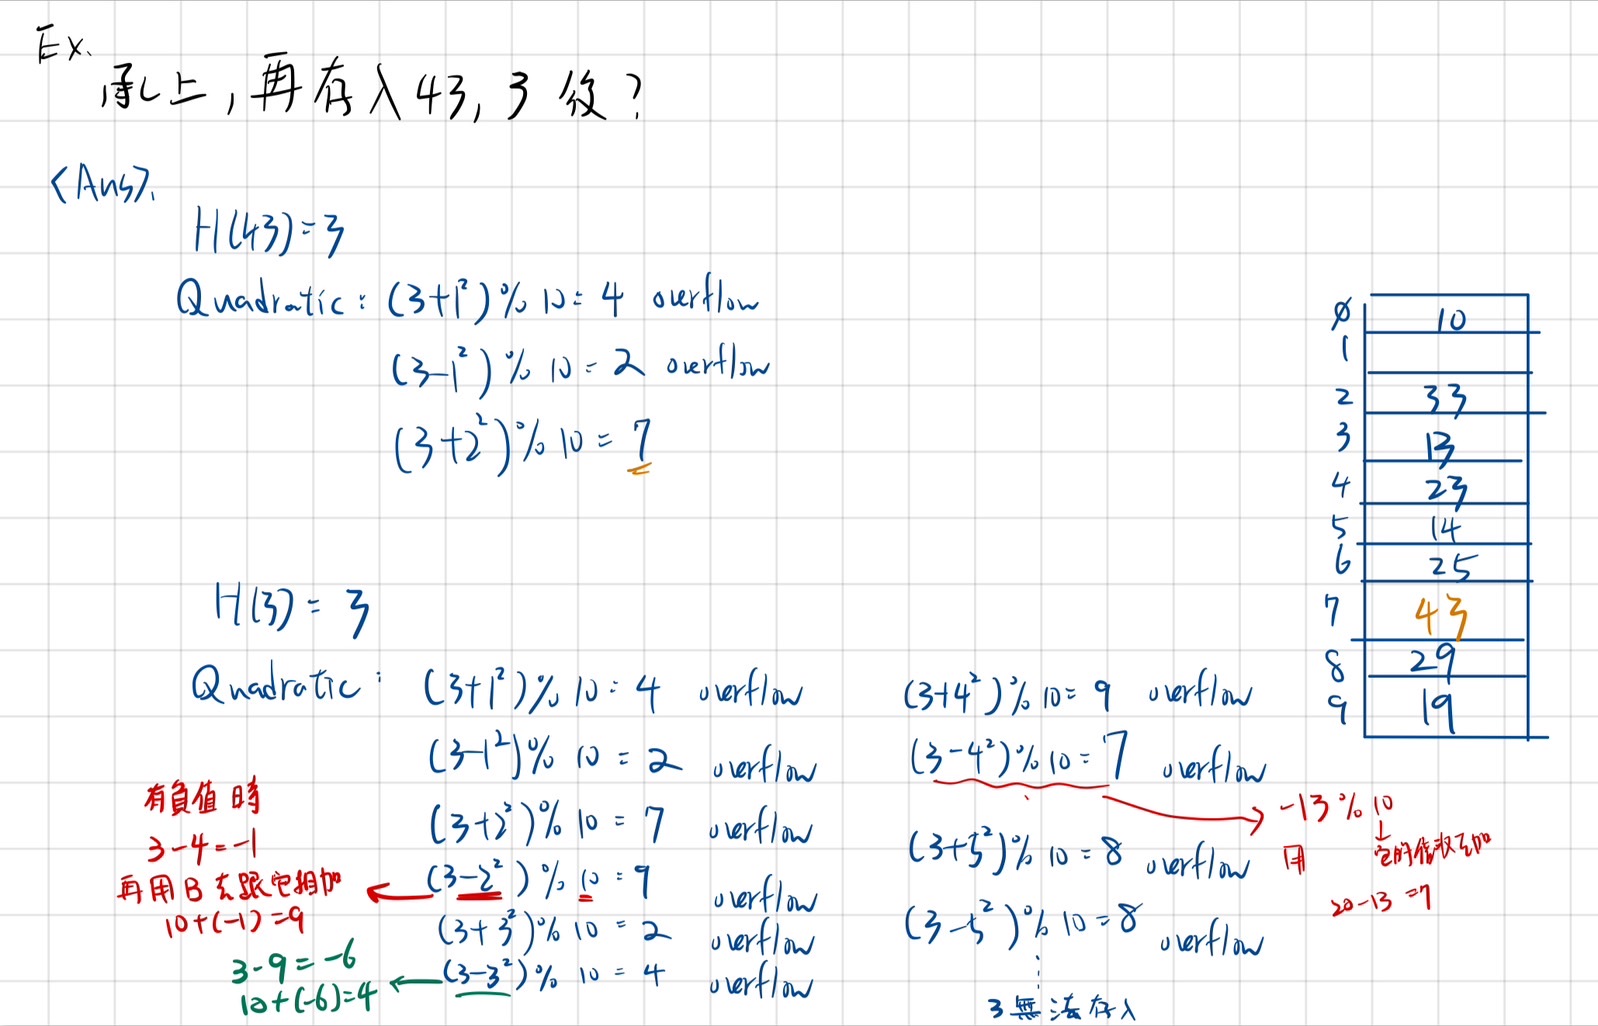 Ex.
承上,再存入43, 3 後?
<Ans>.
H(43)=3
Quadratic: (3+1²)% 10= 4 overflow
(3-1²)% 10 = 2 overflow
(3+2²)% 10 = 7
H(3) = 3
Quadratic: (3+1²)% 10= 4 overflow
(3-1²)% 10 = 2 overflow
(3+2²)% 10 = 7 overflow
(3-2²)% 10 = 9 overflow
(3+3²)% 10 = 2 overflow
(3-3²)% 10 = 4 overflow
有負值時
3-4=-1
再用B去跟它相加
10+(-1)=9
3-9=-6
10+(-6)=4
(3+4²)% 10= 9 overflow
(3-4²)% 10= 7 overflow
(3+5²)% 10=8 overflow
(3-5²)% 10=8 overflow
3無法存入
-13%10
用 它的倍數去加
20-13=7
0 10
1
2 33
3 13
4 23
5 14
6 25
7 43
8 29
9 19